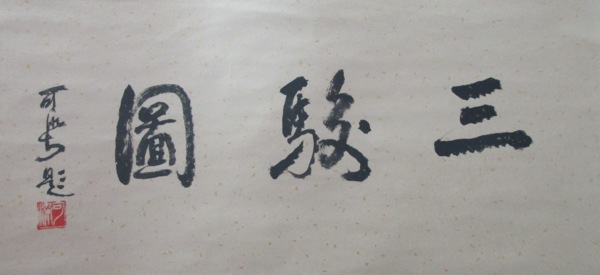 三駿圖
可染題